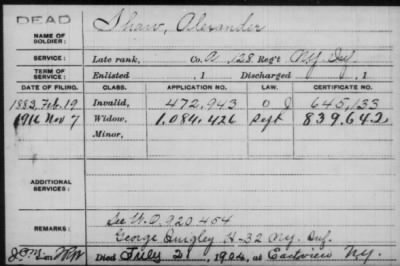 DEAD
NAME OF SOLDIER: Shaw, Alexander
SERVICE: Late rank, Co. A 128 Reg't N.Y. Inf.
TERM OF SERVICE: Enlisted , 1 Discharged , 1
DATE OF FILING. CLASS. APPLICATION NO. LAW. CERTIFICATE NO.
1882, Feb. 19 Invalid, 472,943 645,133
1916 Nov 7 Widow, 1,084,426 Sept 839,642
Minor,
ADDITIONAL SERVICES:
REMARKS: See W.O. 920454
George Quigley H-32 N.Y. Inf.
Died July 2, 1904, at Eastview N.Y.